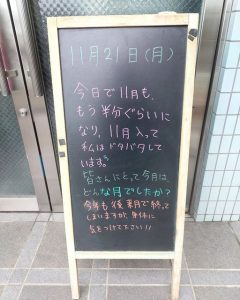 11月21日(月)
今日で11月も、
もう半分ぐらいに
なり、11月入って
私はドタバタして
います。
皆さんにとって今月は
どんな月でしたか?
今年も後来月で終って
しまいますが、身体に
気をつけて下さい!!